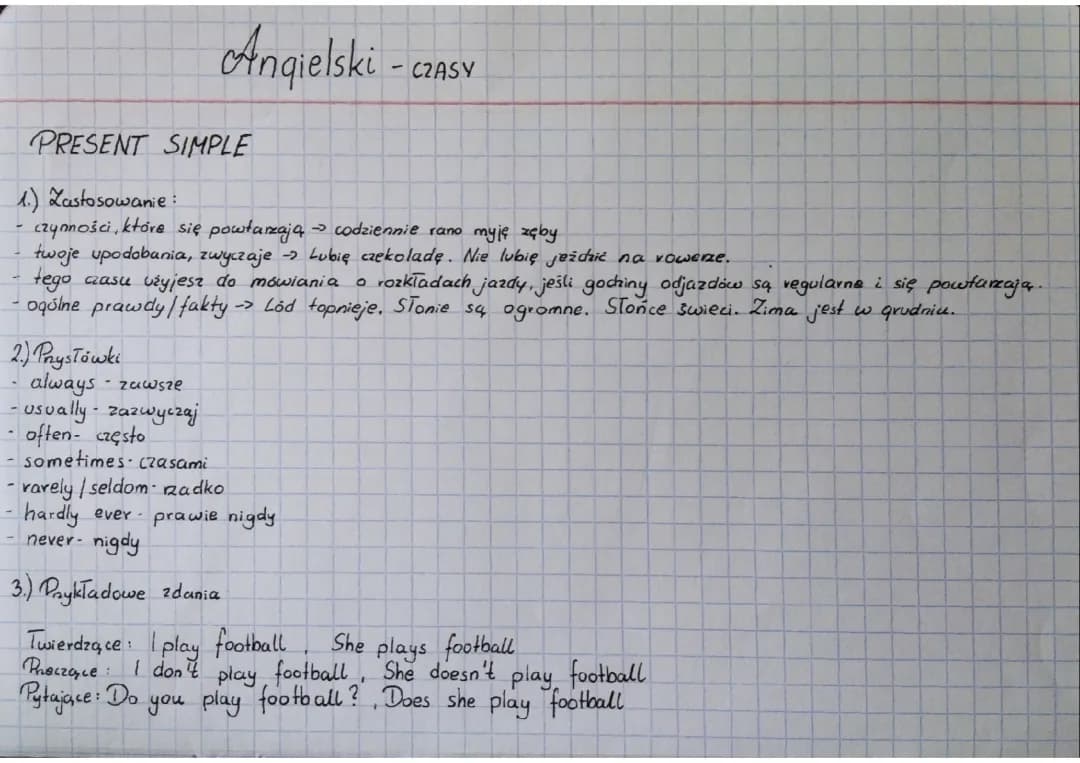 Angielski - CZASY
PRESENT SIMPLE
1.) Zastosowanie:
- czynności, które się powtarzają -> codziennie rano myję zęby
- twoje upodobania, zwyczaje -> Lubię czekoladę. Nie lubię jeździć na rowerze.
- tego czasu użyjesz do mówiania o rozkładach jazdy, jeśli godziny odjazdów są regularne i się powtarzają.
- ogólne prawdy/fakty -> Lód topnieje. Słonie są ogromne. Słońce świeci. Zima jest w grudniu.
2.) Przysłówki
- always - zawsze
- usually - zazwyczaj
- often - często
- sometimes - czasami
- rarely / seldom - rzadko
- hardly ever - prawie nigdy
- never - nigdy
3.) Przykładowe zdania
Twierdzące: I play football, She plays football
Przeczące: I don't play football, She doesn't play football
Pytające: Do you play football?, Does she play football